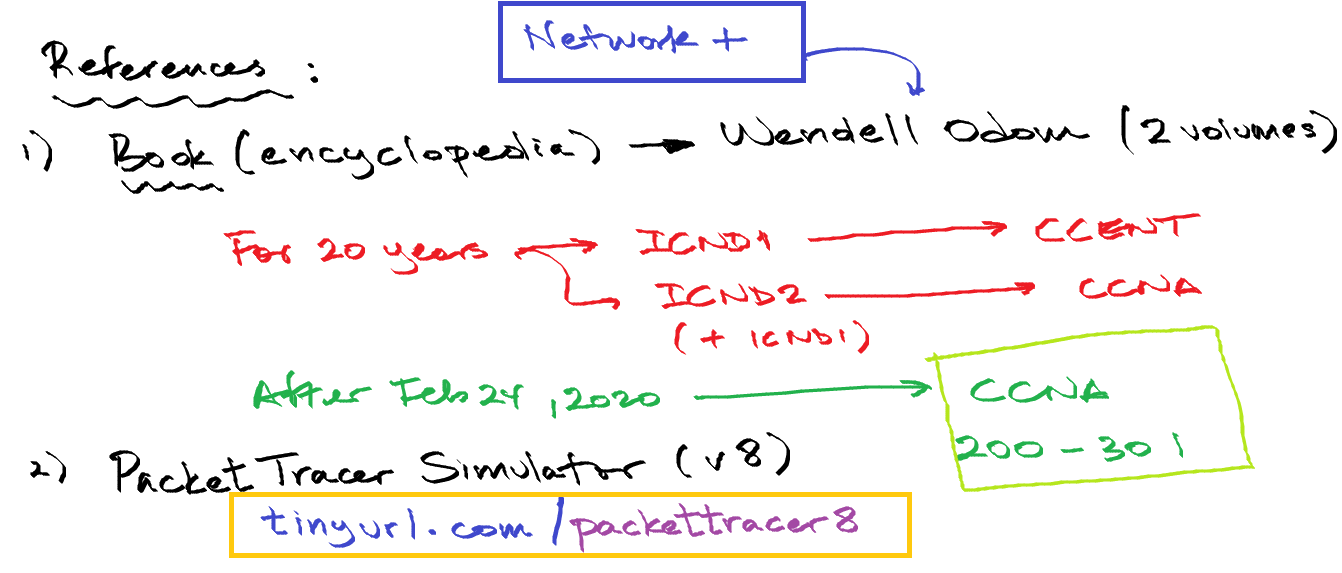 Network +
References :
1) Book (encyclopedia) → Wendell Odom (2 volumes)
For 20 years → ICND1 → CCENT
ICND2 → CCNA
(+ ICND1)
After Feb 24, 2020 → CCNA
200-301
2) Packet Tracer Simulator (v8)
tinyurl.com/packettracer8